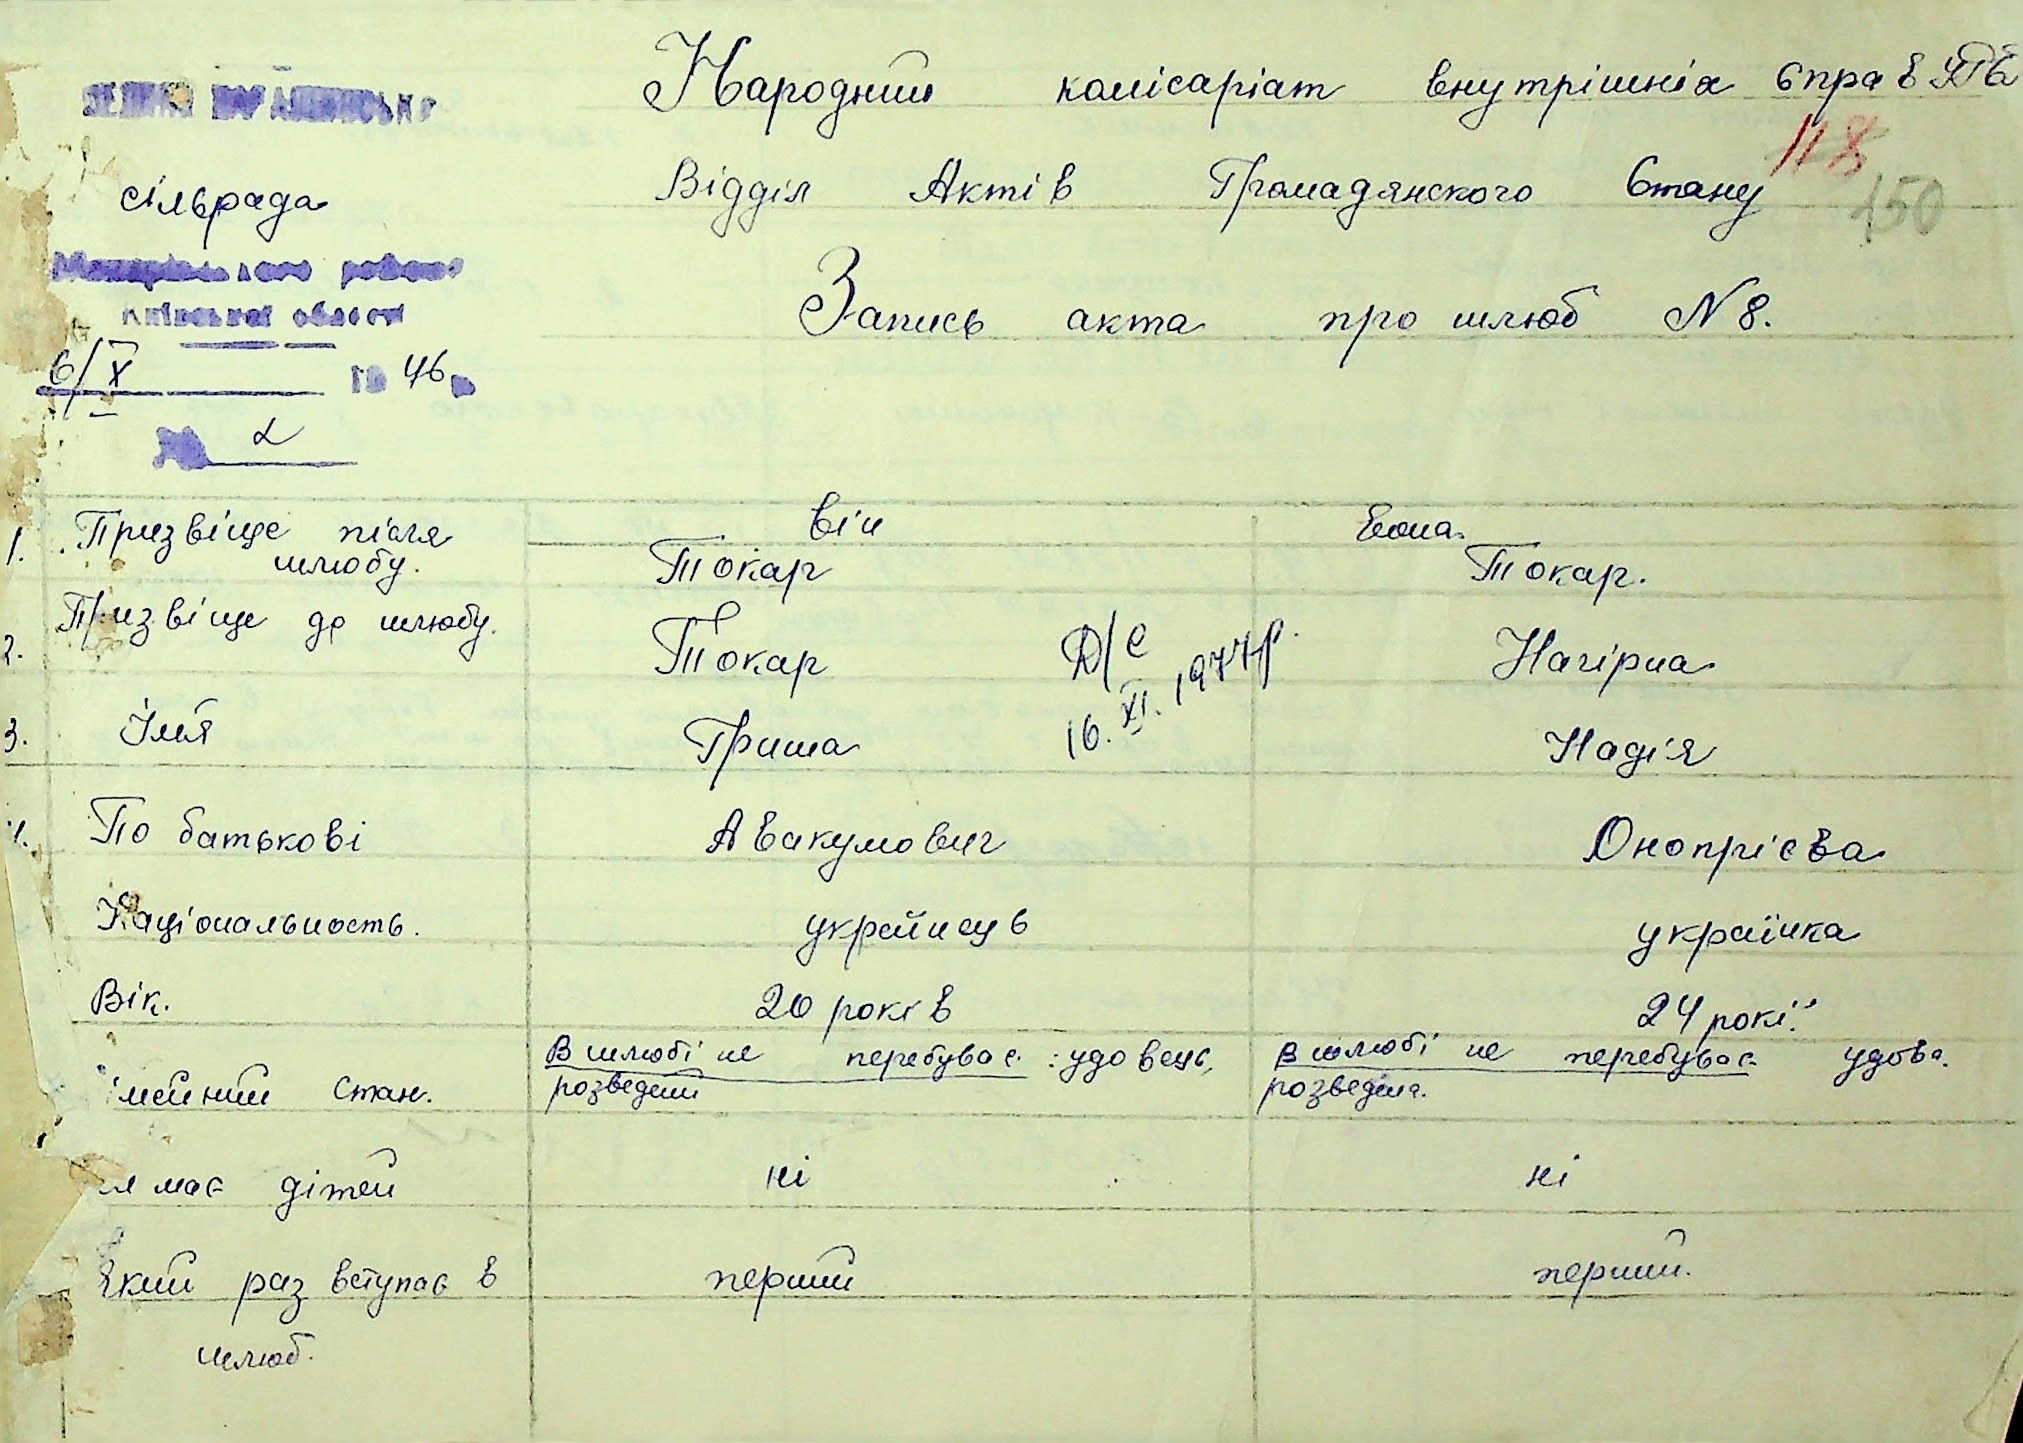 Народний комісаріат внутрішніх справ
сільрада
Відділ Актів Громадянского Стану
118
150
Макарівського району
Київської області
Запись акта про шлюб N 8.
6/X 19 46
він
вона.
1. Призвіще після шлюбу. Токар Токар.
2. Призвіще до шлюбу. Токар Нагірна
Д/С
16. XI. 1977р.
3. Імя Гриша Надія
По батькові Авакумович Онопрієва
Національность. українець українка
Вік. 20 років 24 рокі
В шлюбі не перебуває: удовець, В шлюбі не перебуває удова.
імейний Стан. розведений розведена.
має дітей ні ні
Який раз вступає в перший перший.
шлюб.